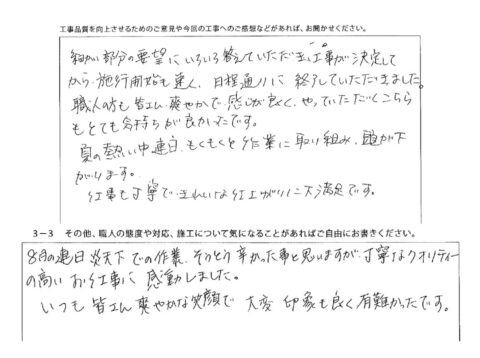 工事品質を向上させるためのご意見や今回の工事へのご感想などがあれば、お聞かせください。
細かい部分の要望にいろいろ答えていただき、工事が決定して
から施行開始も速く、日程通りに終了していただきました。
職人の方も皆さん爽やかで感じが良くて、やっていただくこちら
もとても気持ちが良かったです。
夏の熱い中連日、もくもくと作業に取り組み、頭が下
がります。
仕事も丁寧で、きれいな仕上がりに大満足です。
3－3 その他、職人の態度や対応、施工について気になることがあればご自由にお書きください。
8月の連日炎天下での作業、そうとう辛かった事と思いますが、丁寧なクオリティー
の高いお仕事に感動しました。
いつも皆さん爽やかな笑顔で大変印象も良く有難かったです。